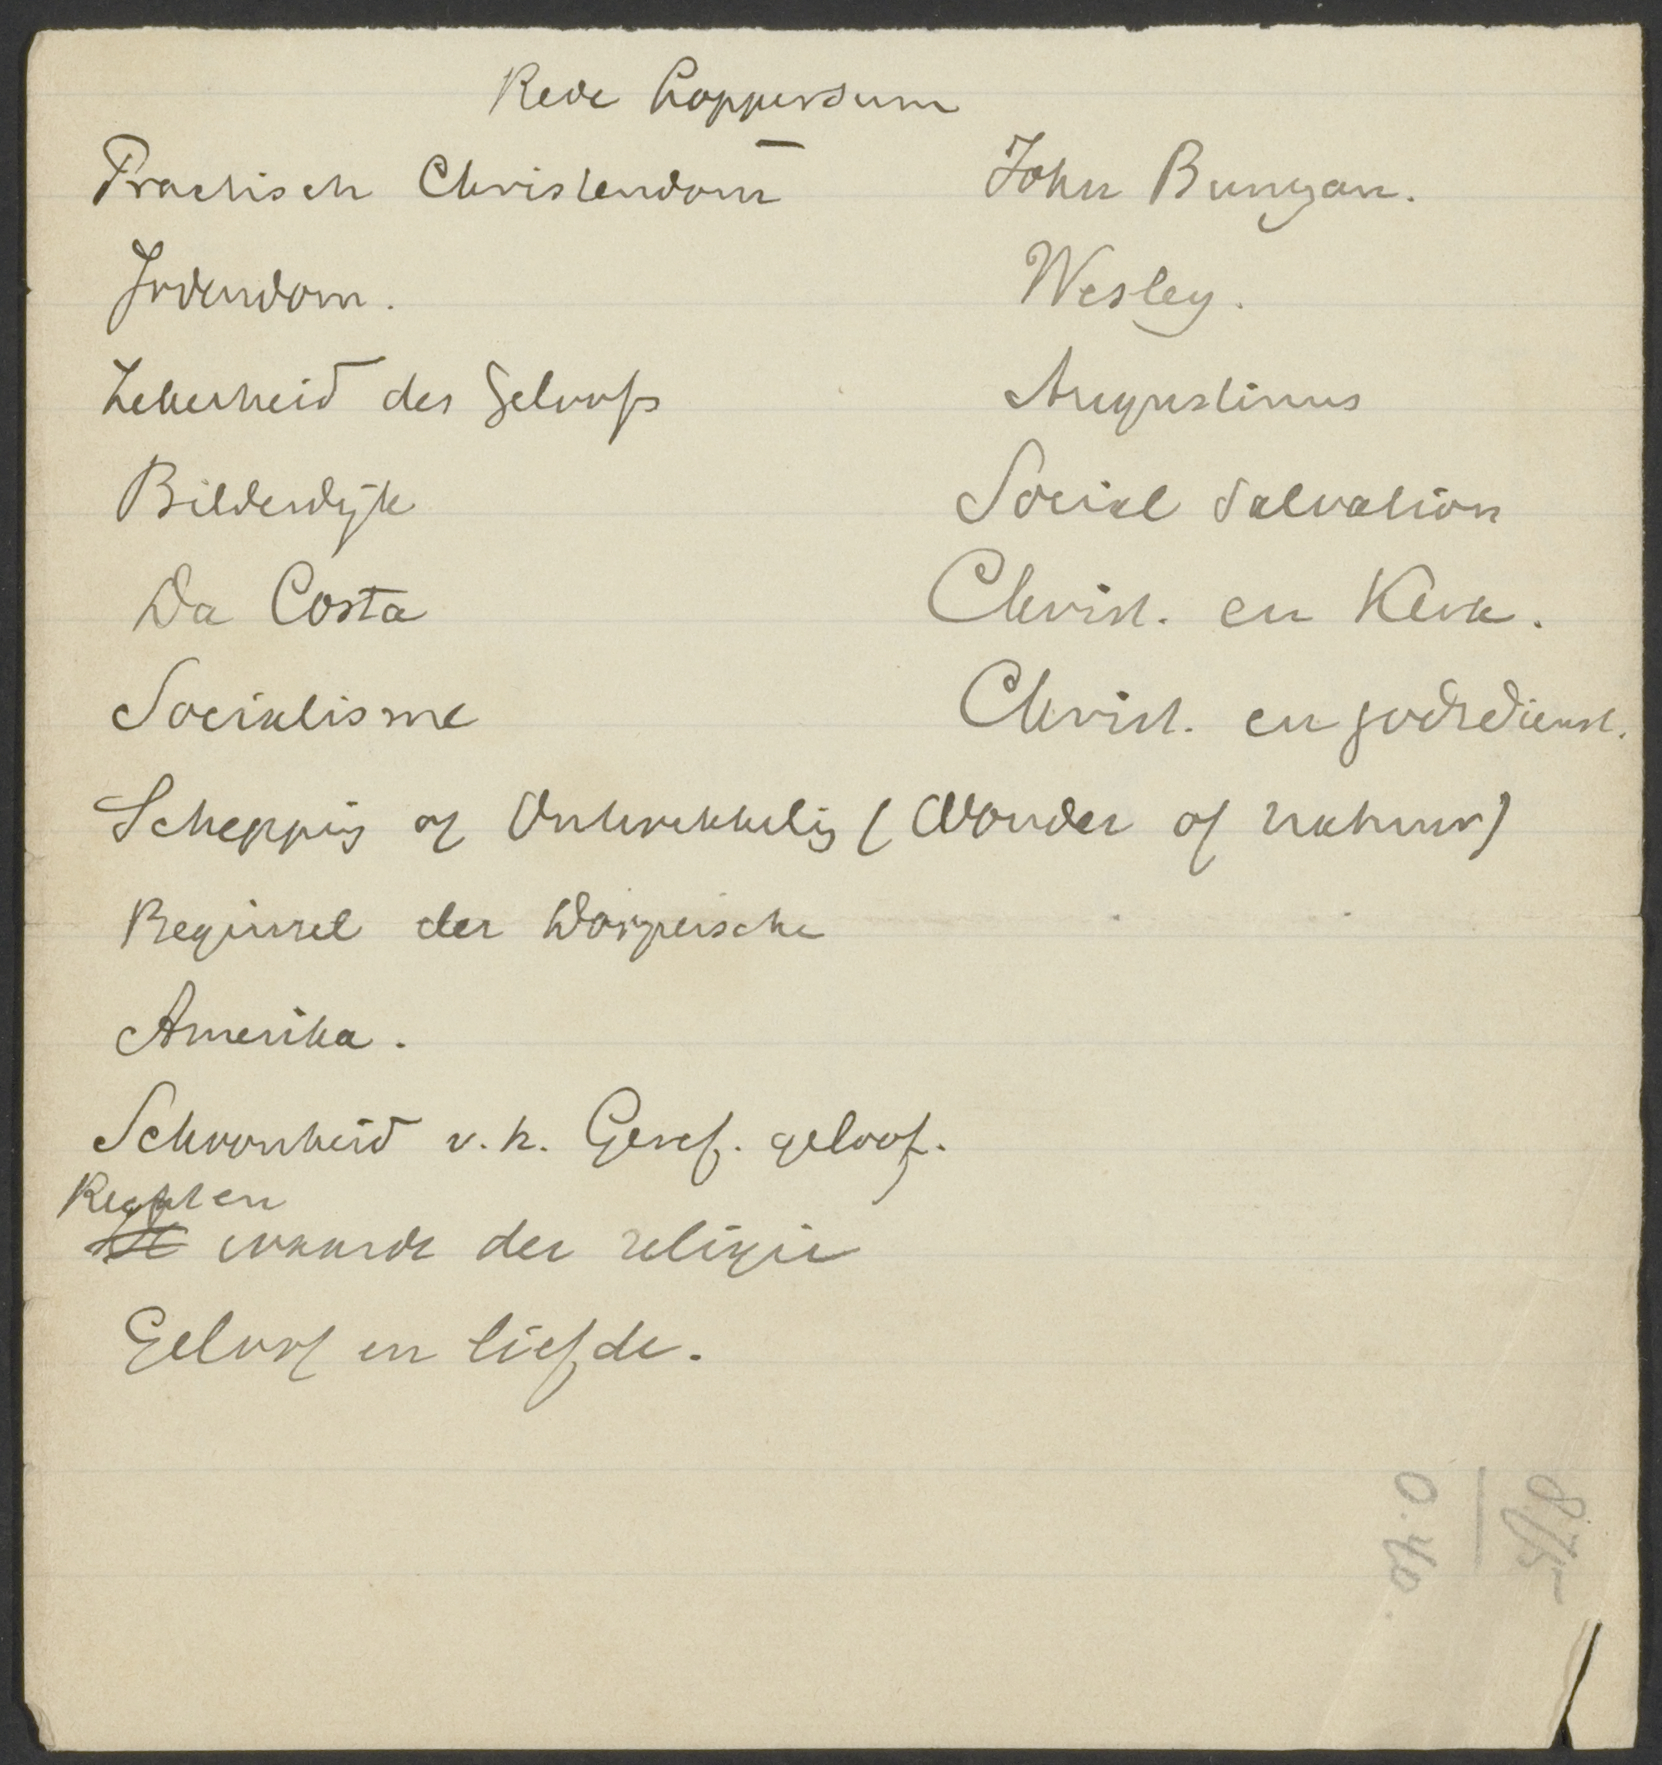 Rede Loppersum
Practisch Christendom
Jodendom.
Zekerheid des Geloofs
Bilderdijk
Da Costa
Socialisme
John Bunyan.
Wesley.
Augustinus
Social Salvation
Christ. en Kerk.
Christ. en godsdienst.
Schepping of Ontwikkeling (Wonder of natuur)
Beginsel der
Amerika.
Schoonheid v. h. Geref. geloof.
waarde der religie
Geloof en liefde.
0.40.